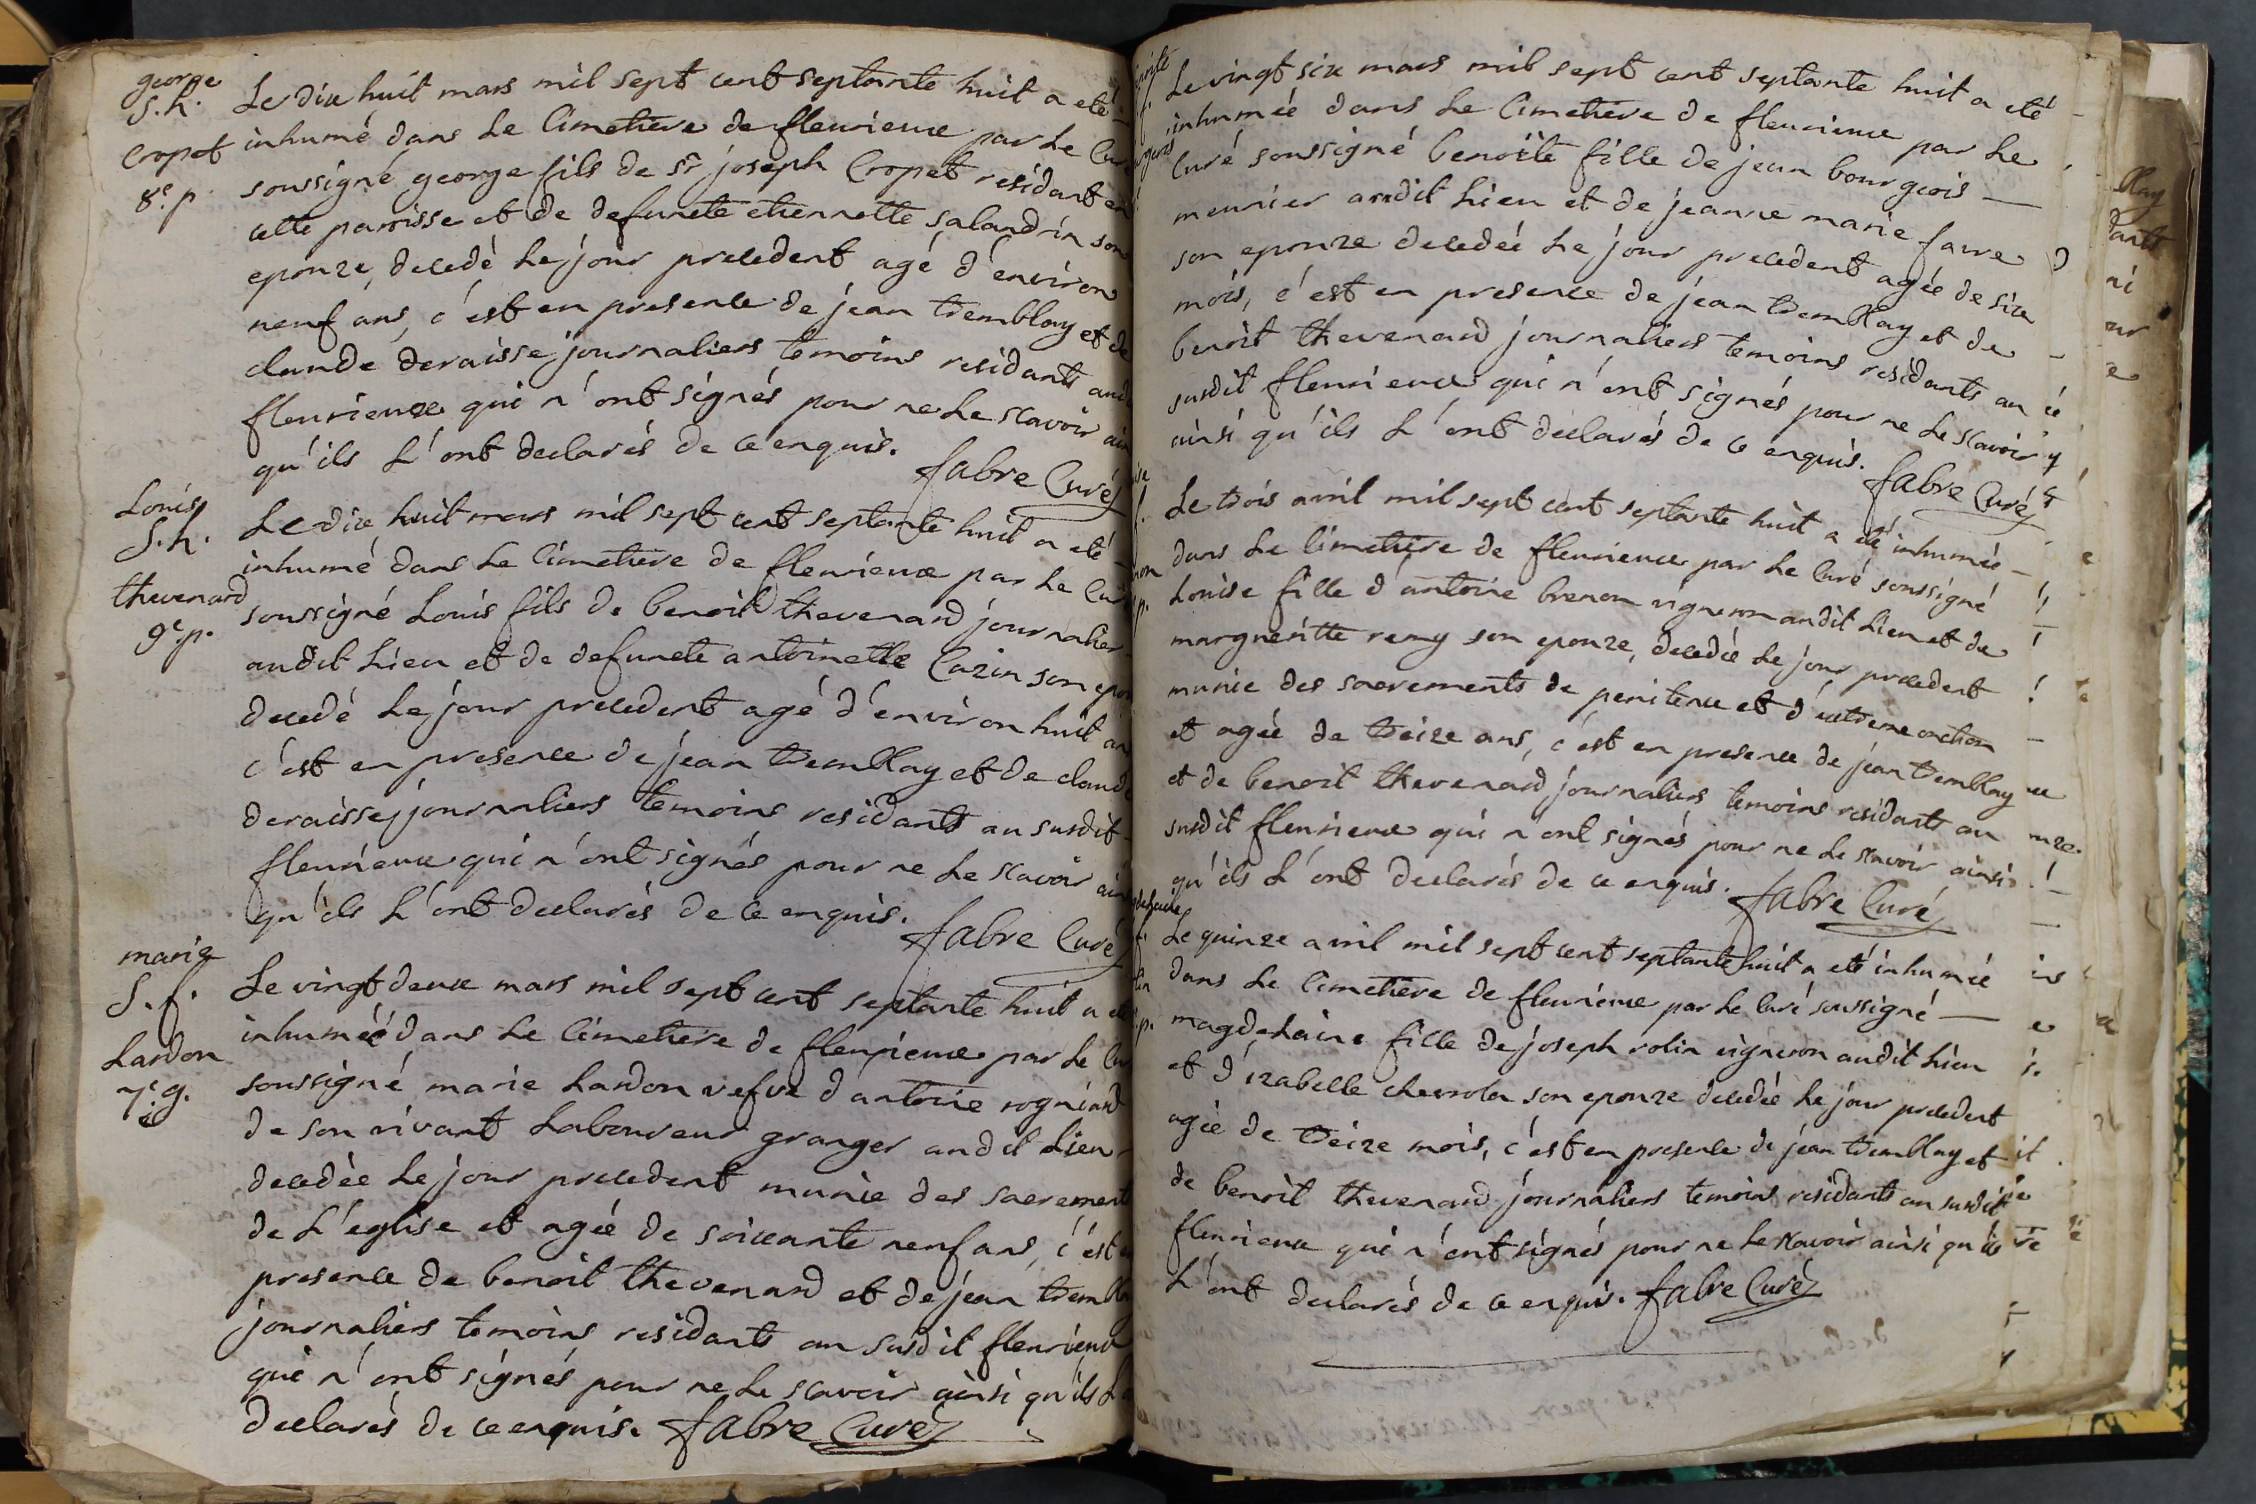 george
S. h.
Cropet
8e. p
Le dix huit mars mil sept cent septante huit a eté
inhumé dans Le Cimetiere de fleurieux par Le Curé
soussigné george fils de Sr joseph Cropet residant en
cette parroisse et de defuncte etiennette salandrin son
epouze, decedé Le jour precedent agé d'environ
neuf ans, c'est en presence de jean tremblay et de
claude deraisse journaliers temoins residants audit
fleurieuxe qui n'ont signés pour ne Le scavoir ain
qu'ils L'ont declarés de ce enquis.
fabre Curé
Louis
S. h.
thevenard
9e. p.
Le dix huit mars mil sept cent septante huit a eté
inhumé dans Le Cimetiere de fleurieux par Le Curé
soussigné Louis fils de benoit thevenard journalier
audit Lieu et de defuncte antoinette Cazin son epou
decedé Le jour precedent agé d'environ huit an
c'est en presence de jean tremblay et de claude
deraisse journaliers temoins residants au susdit
fleurieux qui n'ont signés pour ne Le scavoir ain
qu'ils L'ont declarés de ce enquis.
fabre Curé
marie
S. f.
Lardon
7e. g.
Le vingt deux mars mil sept cent septante huit a eté
inhumée dans Le Cimetiere de fleurieux par Le Cu
soussigné marie Lardon vefve d'antoine rogniard
de son vivant Laboureur granger audit Lieu
decedée Le jour precedent munie des sacrement
de L'eglise et agée de soixante neuf ans, c'est en
presence de benoit thevenard et de jean trembla
journaliers temoins residants au susdit fleurieux
qui n'ont signés pour ne Le scavoir ainsi qu'ils L'o
declarés de ce enquis. fabre Curé
Le vingt six mars mil sept cent septante huit a eté
inhumée dans Le Cimetiere de fleurieux par Le
Curé soussigné benoite fille de jean bourgeois
meunier audit Lieu et de jeanne marie favre
son epouze decedeé Le jour precedent agée de six
mois, c'est en presence de jean tremblay et de
benoit thevenard journaliers temoins residants au
susdit fleurieux qui n'ont signés pour ne Le scavoir
ainsi qu'ils L'ont declarés de ce enquis.
fabre Curé
Le trois avril mil sept cent septante huit a eté inhumée
dans Le Cimetiere de fleurieux par Le Curé soussigné
Louise fille d'antoine brenon vigneron audit Lieu et de
margueritte remy son epouze, decedée Le jour precedent
munie des sacrements de penitence et d'extreme onction
et agée de treize ans, c'est en presence de jean tremblay
et de benoit thevenard journaliers temoins residants au
susdit fleurieux qui n'ont signés pour ne Le scavoir ainsi
qu'ils L'ont declarés de ce enquis.
fabre Curé
Le quinze avril mil sept cent septante huit a eté inhumée
dans Le Cimetiere de fleurieux par Le Curé soussigné
magdeLaine fille de joseph rolin vigneron audit Lieu
et d'izabelle son epouze decedée Le jour precedent
agée de treize mois, c'est en presence de jean tremblay et
de benoit thevenard journaliers temoins residants au susdit
fleurieux qui n'ont signés pour ne Le scavoir ainsi qu'ils
L'ont declarés de ce enquis. fabre Curé